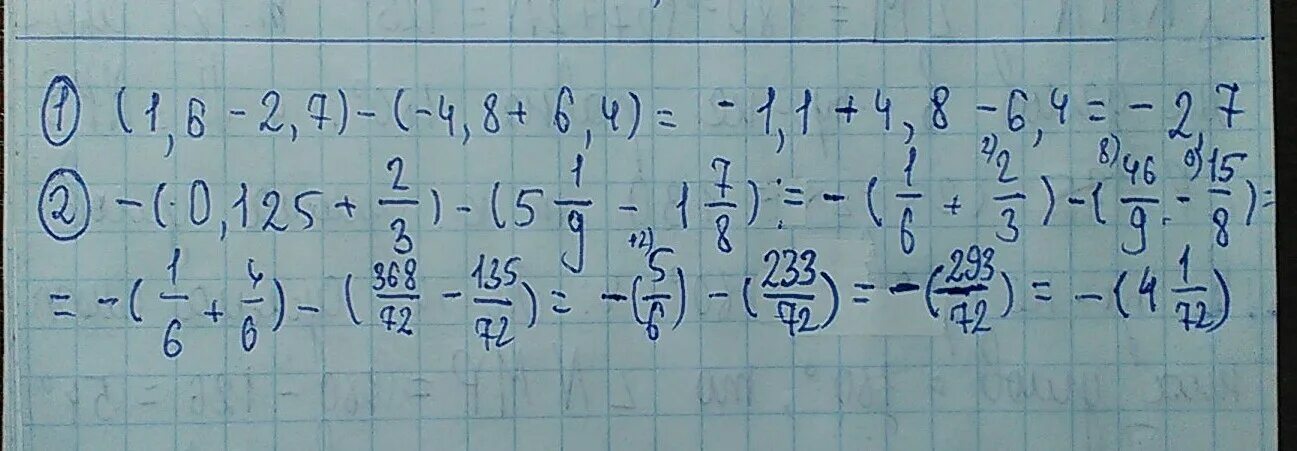 ① (1,6 - 2,7) - (-4,8 + 6,4) = - 1,1 + 4,8 - 6,4 = - 2,7
② - (0,125 + 2/3) - (5 1/9 - 1 7/8) = - (1/6 + 2) 2/3) - (8) 46/9 - 9) 15/8) =
= - (1/6 + 4/6) - (368/72 - 135/72) = - (+2) 5/6) - (233/72) = - (293/72) = - (4 1/72)